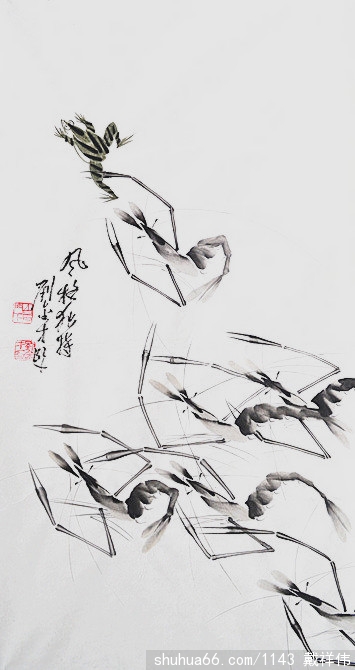 风格独特
劉 才题
shuhua66.com/1143 戴祥伟